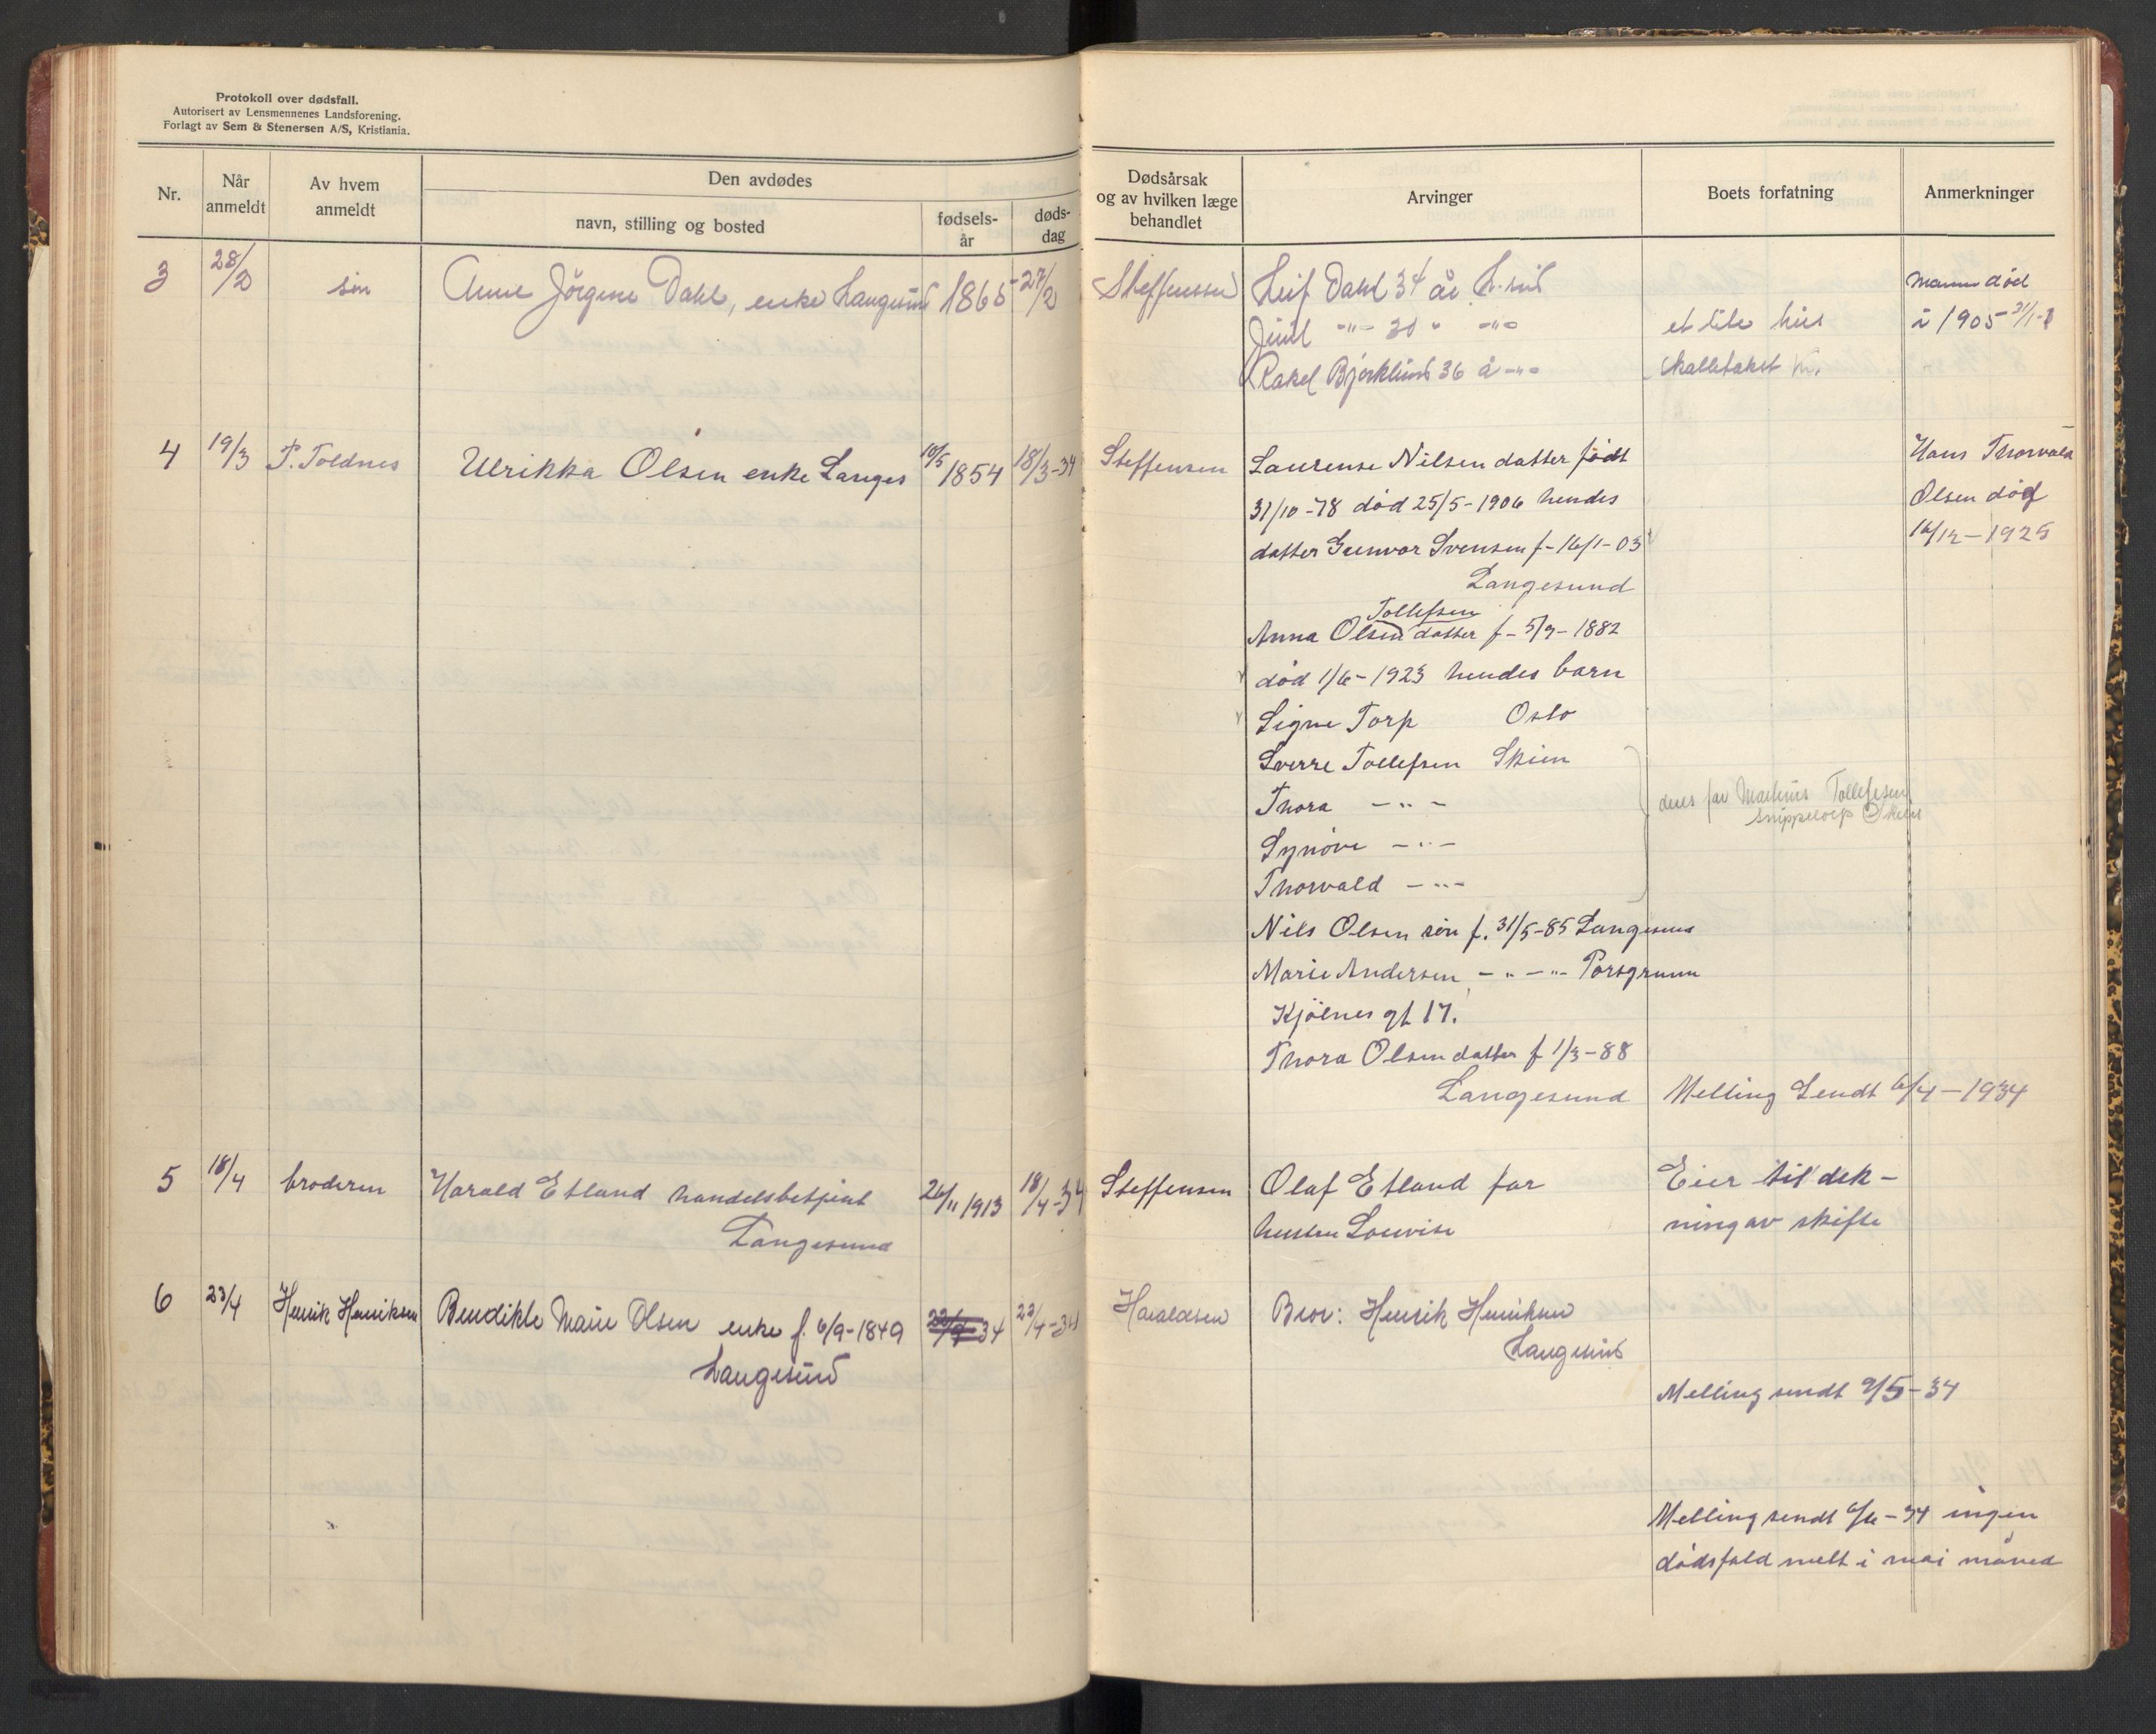 Protokoll over dødsfall.
Autorisert av Lensmennenes Landsforening.
Forlagt av Sem & Stenersen A/S, Kristiania.
Nr.
Når anmeldt
Av hvem anmeldt
Den avdødes
navn, stilling og bosted
fødsels-år
døds-dag
Dødsårsak og av hvilken læge behandlet
Arvinger
Boets forfatning
Anmerkninger
3 28/2 søn Anne Jörgine Dahl, enke Langesund 1865 27/2 Steffensen Leif Dahl 34 år L.sund
Mann død
-"- 30 " -"- et lite hus i 1905
Rakel Bjørklund 36 å -"-
4 19/3 P. Toldnes Ulrikka Olsen enke Langes 10/5 1854 18/3-34 Steffensen Laurense Nilsen datter født
Hans Thorvald
31/10-78 död 25/5-1906 hendes
Olsen død
datter Gunvor Svensen f-16/1-03
16/12-1925
Langesund
Tollefsen
Anna Olsen datter f-5/9-1882
död 1/6-1923 hendes barn
Signe Torp Oslo
Sverre Tollefsen Skien
Thora -"-
deres far Martinus Tollefsen
Synöve -"-
Thorvald -"-
Nils Olsen sön f. 31/5-85 Langesund
Marie Andersen -"- -"- Porsgrunn
Kjölnes gt 17.
Thora Olsen datter f 1/3-88
Langesund
Melling Sendt 6/4-1934
5 18/4 broderen Harald Etland handelsbetjent 26/11 1913 18/4-34 Steffensen Olaf Etland far
Eier til dek-
Langesund
hustru Lovise
ning av skifte
6 23/4 Henrik Henriksen Bendikte Marie Olsen enke f. 6/9-1849 22/4-34 22/4-34 Haraldsen Bror: Henrik Henriksen
Langesund
Langesund
Melling sendt 9/5-34
Melling sendt 6/6-34 ingen
dödsfald melt i mai måned